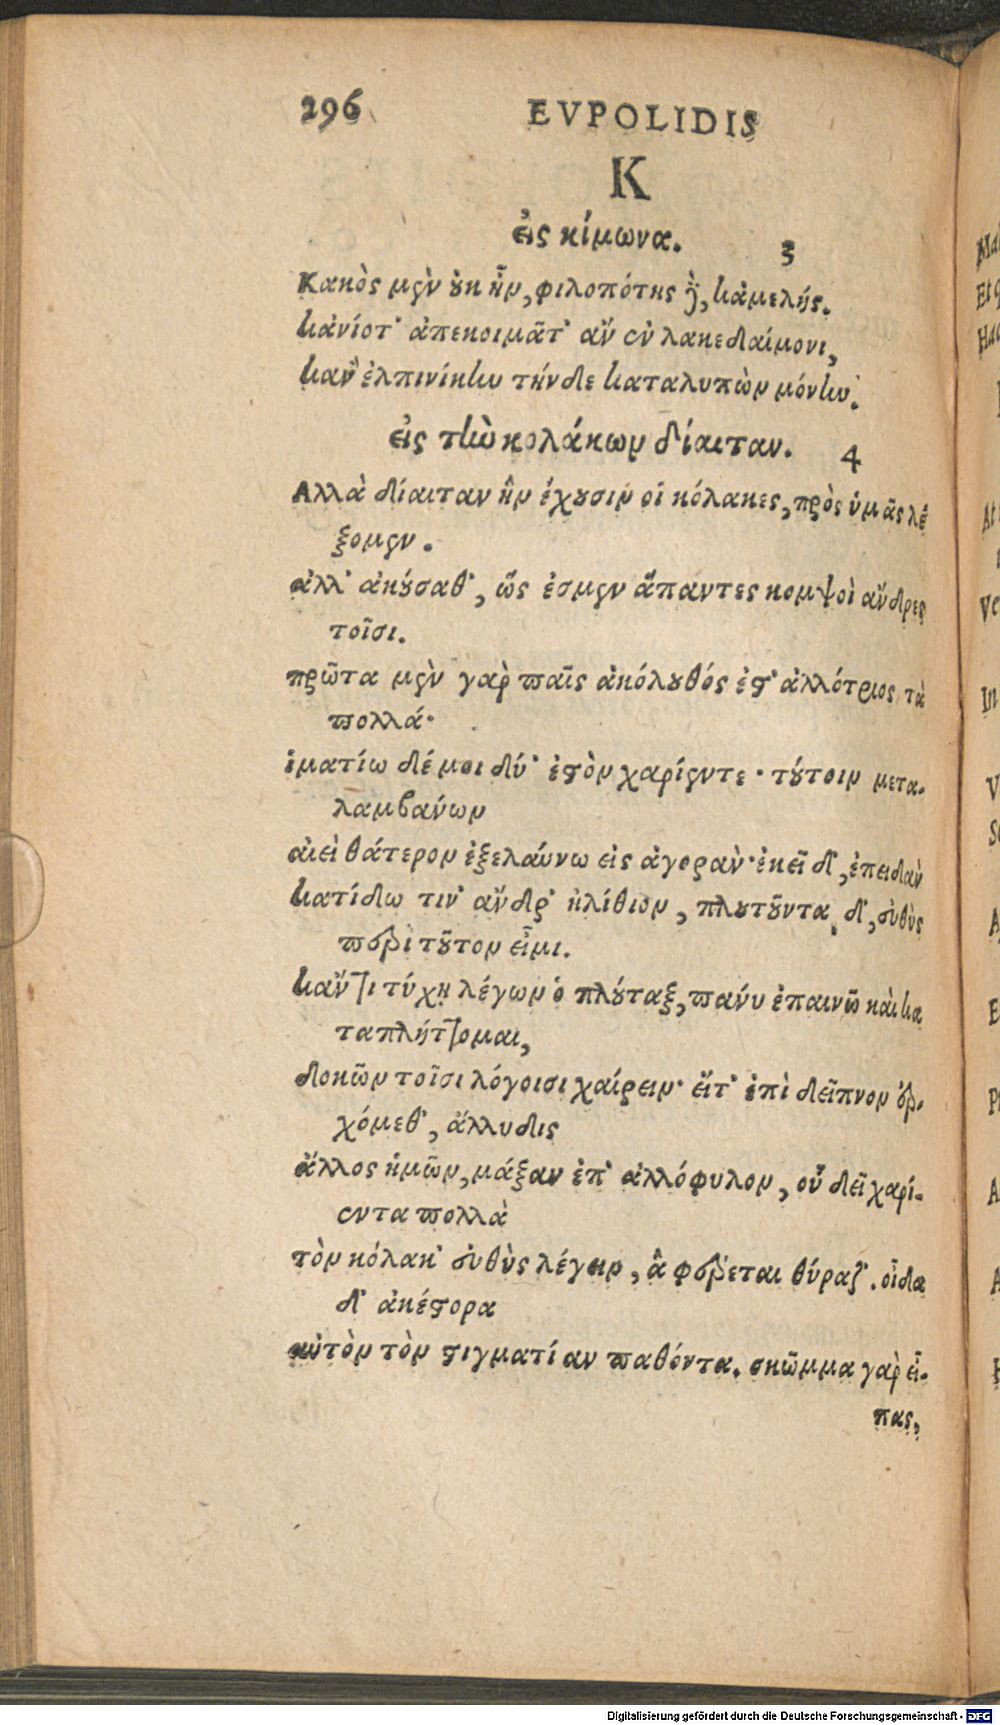 296 EVPOLIDIS
K
εἰς κίμωνα. 3
Κακὸς μὲν ὐκ ἦν, φιλοπότης δὲ, κἀμελής.
κἀνίοτ' ἀπεκοιμᾶτ' αὔ ἐν λακεδαίμονι,
κἂν ἐλπινίκην τήνδε καταλυπὼν μόνην.
εἰς τὴν κολάκων δίαιταν. 4
Αλλὰ δίαιταν ἣν ἔχουσιν οἱ κόλακες, πρὸς ὑμᾶς λέ
ξομεν.
ἀλλ' ἀκούσαθ', ὥς ἐσμεν ἅπαντες κομψοὶ ἄνδρες
τοῖσι.
πρῶτα μὲν γὰρ παῖς ἀκόλουθός ἐστ' ἀλλότριος τὰ
πολλά·
ἱματίω δέ μοι δύ' ἐστὸν χαρίεντε· τούτοιν μετα-
λαμβανων
αἰεὶ θάτερον ἐξελαύνω εἰς ἀγορὰν· ἐκεῖ δ', ἐπειδὰν
κατίδω τιν' ἄνδρ' ἠλίθιον, πλουτοῦντα, δ', εὐθὺς
περὶ τοῦτον εἶμι.
κἄν τι τύχῃ λέγων ὁ πλούταξ, πανυ ἐπαινῶ καὶ κα
ταπλήττομαι,
δοκῶν τοῖσι λόγοισι χαίρειν· εἴτ' ἐπὶ δεῖπνον ἐρ-
χόμεθ', ἄλλυδις
ἄλλος ἡμῶν, μάξαν ἐπ' ἀλλόφυλον, οὗ δεῖ χαρί-
εντα πολλὰ
τὸν κόλακ' εὐθὺς λέγειν, ἢ φέρεται θύραζ'. οἶδα
δ' ἀκέστορα
αὐτὸν τὸν στιγματίαν παθόντα. σκῶμμα γὰρ εἶ-
πας,
Digitalisierung gefördert durch die Deutsche Forschungsgemeinschaft - DFG